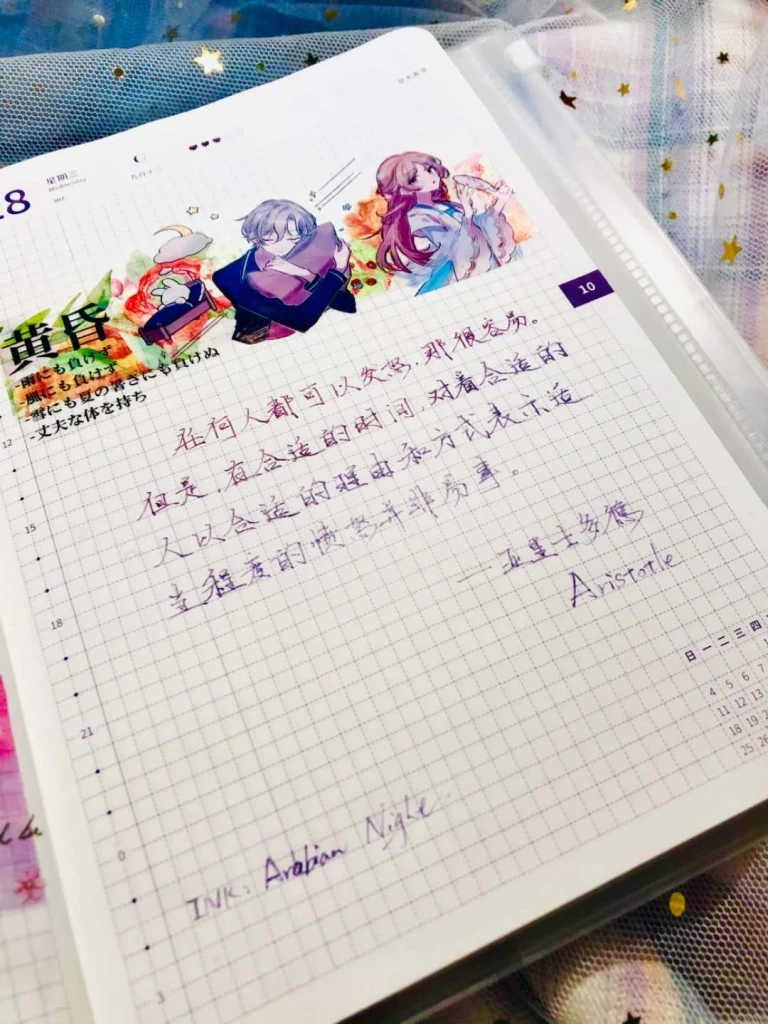 28
星期三
Wednesday
九月十二
黄昏
-雨にも負けず
-風にも負けず
-雪にも夏の暑さにも負けぬ
-丈夫な体を持ち
10
任何人都可以发怒,那很容易。
但是,在合适的时间,对着合适的
人以合适的理由和方式表示适
当程度的愤怒并非易事。
—亚里士多德
Aristotle
12
15
18
21
0
3
日 一 二 三 四
1
4 5 6 7
11 12 13
18 19 20
25 26
INK: Arabian Night